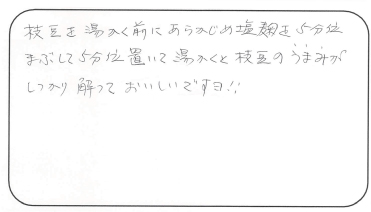 枝豆を湯がく前にあらかじめ塩麹を5分位
まぶして5分位置いて湯がくと枝豆のうまみが
しっかり解っておいしいですヨ!!